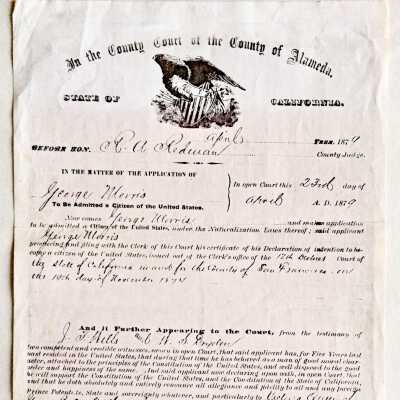 In the County Court of the County of Alameda,
STATE OF CALIFORNIA.
April TERM, 1879
BEFORE HON. A. Redman County Judge.
IN THE MATTER OF THE APPLICATION OF
George Morris
To be Admitted a Citizen of the United States.
In open Court this 23rd day of
April A. D. 1879
Now comes George Morris and makes application
to be admitted a Citizen of the United States, under the Naturalization Laws thereof; said applicant
George Morris
producing and filing with the Clerk of this Court his certificate of his Declaration of intention to be-
come a citizen of the United States, issued out of the Clerk's office of the 12th District Court of
the State of California in and for the County of San Francisco on
the 10th day of November 1874
And it Further Appearing to the Court, from the testimony of
J. T. Mills and W. S.
two competent and credible witnesses, sworn in open Court, that said applicant has, for Five Years last
past resided in the United States, that during that time he has behaved as a man of good moral char-
acter, attached to the principles of the Constitution of the United States, and well disposed to the good
order and happiness of the same. And said applicant now declaring upon oath, in open Court, that he
will support the Constitution of the United States, and the Constitution of the State of California,
and that he doth absolutely and entirely renounce all allegiance and fidelity to all and any Foreign
Prince Potentate, State and sovereignty whatever, and particularly to